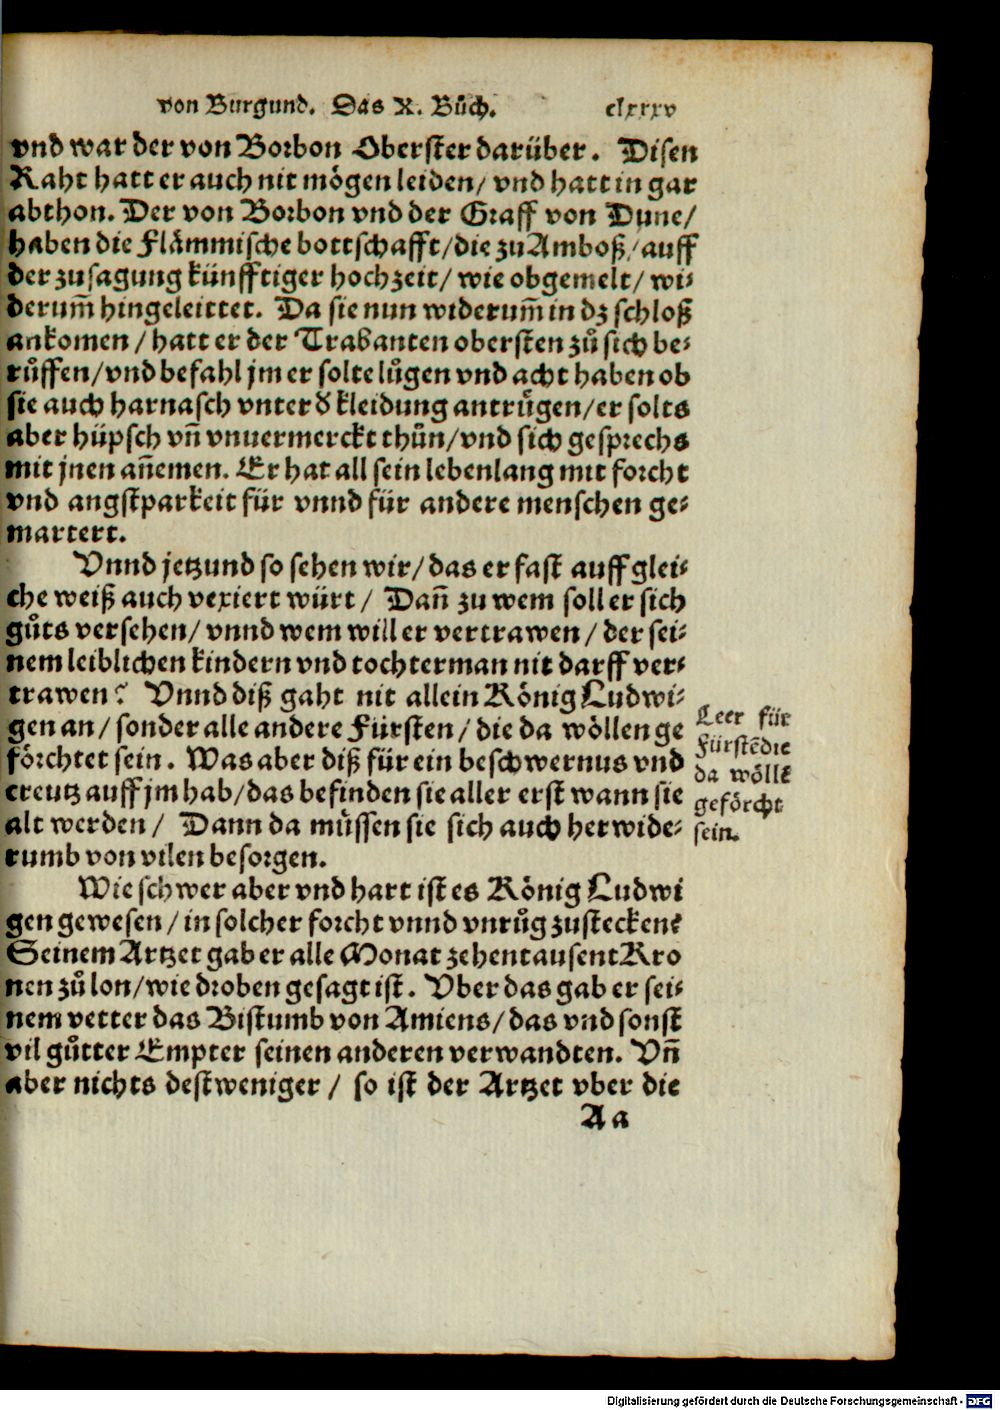 von Burgund. Das X. Bůch. clxxxv
vnd war der von Borbon Oberster darüber. Disen
Raht hatt er auch nit mögen leiden/ vnd hatt in gar
abthon. Der von Borbon vnd der Graff von Dune/
haben die Flämmische bottschafft/die zu Amboß/auff
der zusagung künfftiger hochzeit/ wie obgemelt/ wi⸗
derum̄ hingeleittet. Da sie nun widerum̄ in dz schloß
ankomen/hatt er der Trabanten obersten zů sich be⸗
růffen/vnd befahl jm er solte lůgen vnd acht haben ob
sie auch harnasch vnter d̕ kleidung antrůgen/er solts
aber hüpsch vn̄ vnuermerckt thůn/vnd sich gesprechs
mit jnen an̄emen. Er hat all sein lebenlang mit forcht
vnd angstparkeit für vnnd für andere menschen ge⸗
martert.
Vnnd jetzund so sehen wir/das er fast auff glei⸗
che weiß auch vexiert würt/ Dan̄ zu wem soll er sich
gůts versehen/vnnd wem will er vertrawen/der sei⸗
nem leiblichen kindern vnd tochterman nit darff ver⸗
trawen? Vnnd diß gaht nit allein König Ludwi⸗
gen an/sonder alle andere Fürsten/die da wöllen ge
förchtet sein. Was aber diß für ein beschwernus vnd
creutz auff jm hab/das befinden sie aller erst wann sie
alt werden/ Dann da müssen sie sich auch herwide⸗
rumb von vilen besorgen.
Leer für
Fürstē die
da wöllē
geförcht
sein.
Wie schwer aber vnd hart ist es König Ludwi
gen gewesen/in solcher forcht vnnd vnrůg zustecken?
Seinem Artzet gab er alle Monat zehentausent Kro
nen zů lon/wie droben gesagt ist. Vber das gab er sei⸗
nem vetter das Bistumb von Amiens/das vnd sonst
vil gůtter Empter seinen anderen verwandten. Vn̄
aber nichts destweniger/ so ist der Artzet vber die
Aa
Digitalisierung gefördert durch die Deutsche Forschungsgemeinschaft - DFG